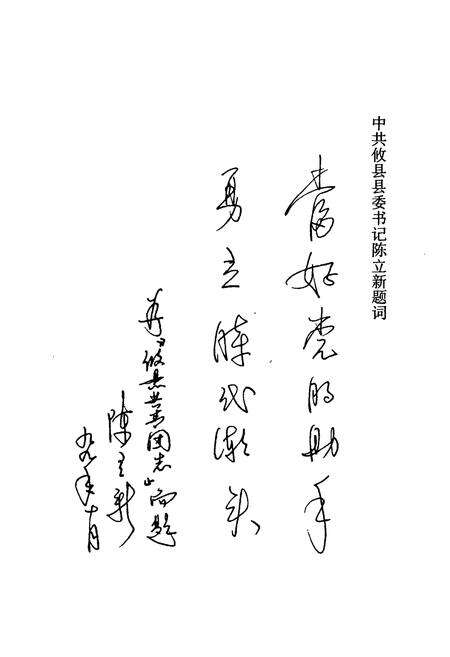 中共攸县县委书记陈立新题词
當好党的助手
勇立時代潮头
攸县共青团志》而题
陈立新
九九年十月